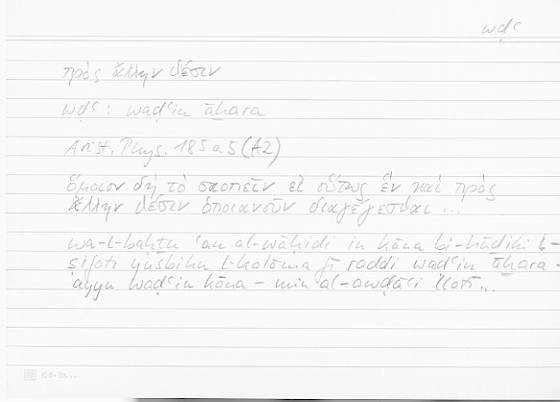 wḍʿ
πρὸς ἄλλην θέσιν
wḍʿ : waḍʿin āḫara
Arist. Phys. 185 a 5 (A2)
ὅμοιον δὴ τὸ σκοπεῖν εἰ οὕτως ἓν καὶ πρὸς
ἄλλην θέσιν ὁποιανοῦν διαλέγεσθαι ...
wa-l-baḥṯu ʿan al-wāḥidi in kāna bi-hāḏihi l-
ṣifati yušbihu l-kalāma fī raddi waḍʿin āḫara -
ayyu waḍʿin kāna - min al-awḍāʿi llatī...